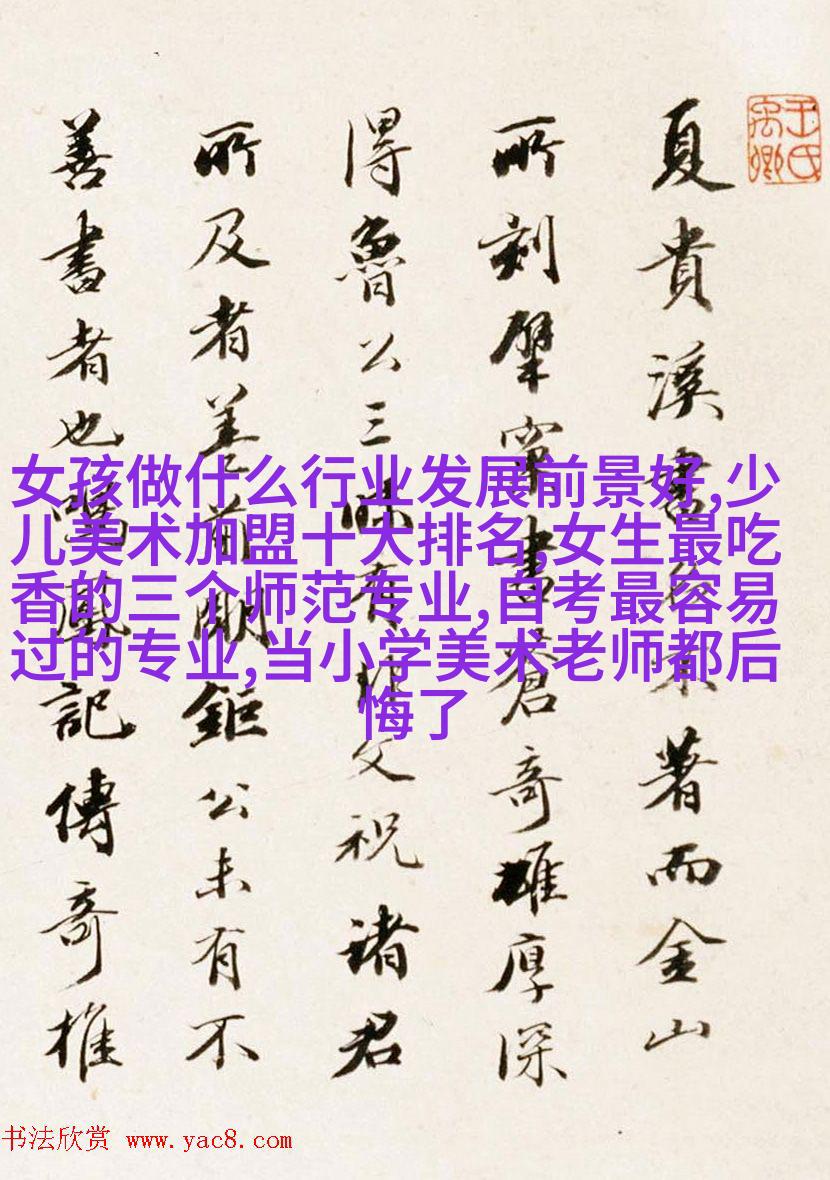 王氏
禹卿
夏貴溪書不著而金山
所刻擘窠書蒼奇雄厚深
得魯公三昧有文祝諸君
所及者蓋前明鉅公未有不
善書者也鳴鳳記傳奇推
女孩做什么行业发展前景好,少
儿美术加盟十大排名,女生最吃
香的三个师范专业,自考最容易
过的专业,当小学美术老师都后
悔了
书法欣赏 www.yac8.com